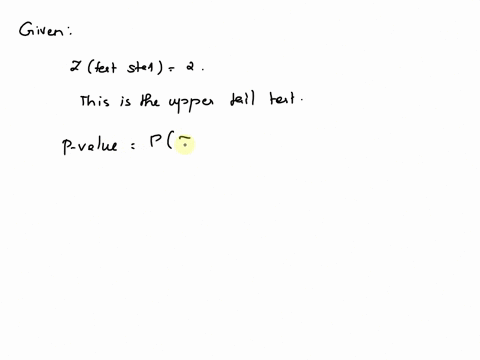 Given:
Z (test stat) = 2.
This is the upper tail test.
p-value = P(